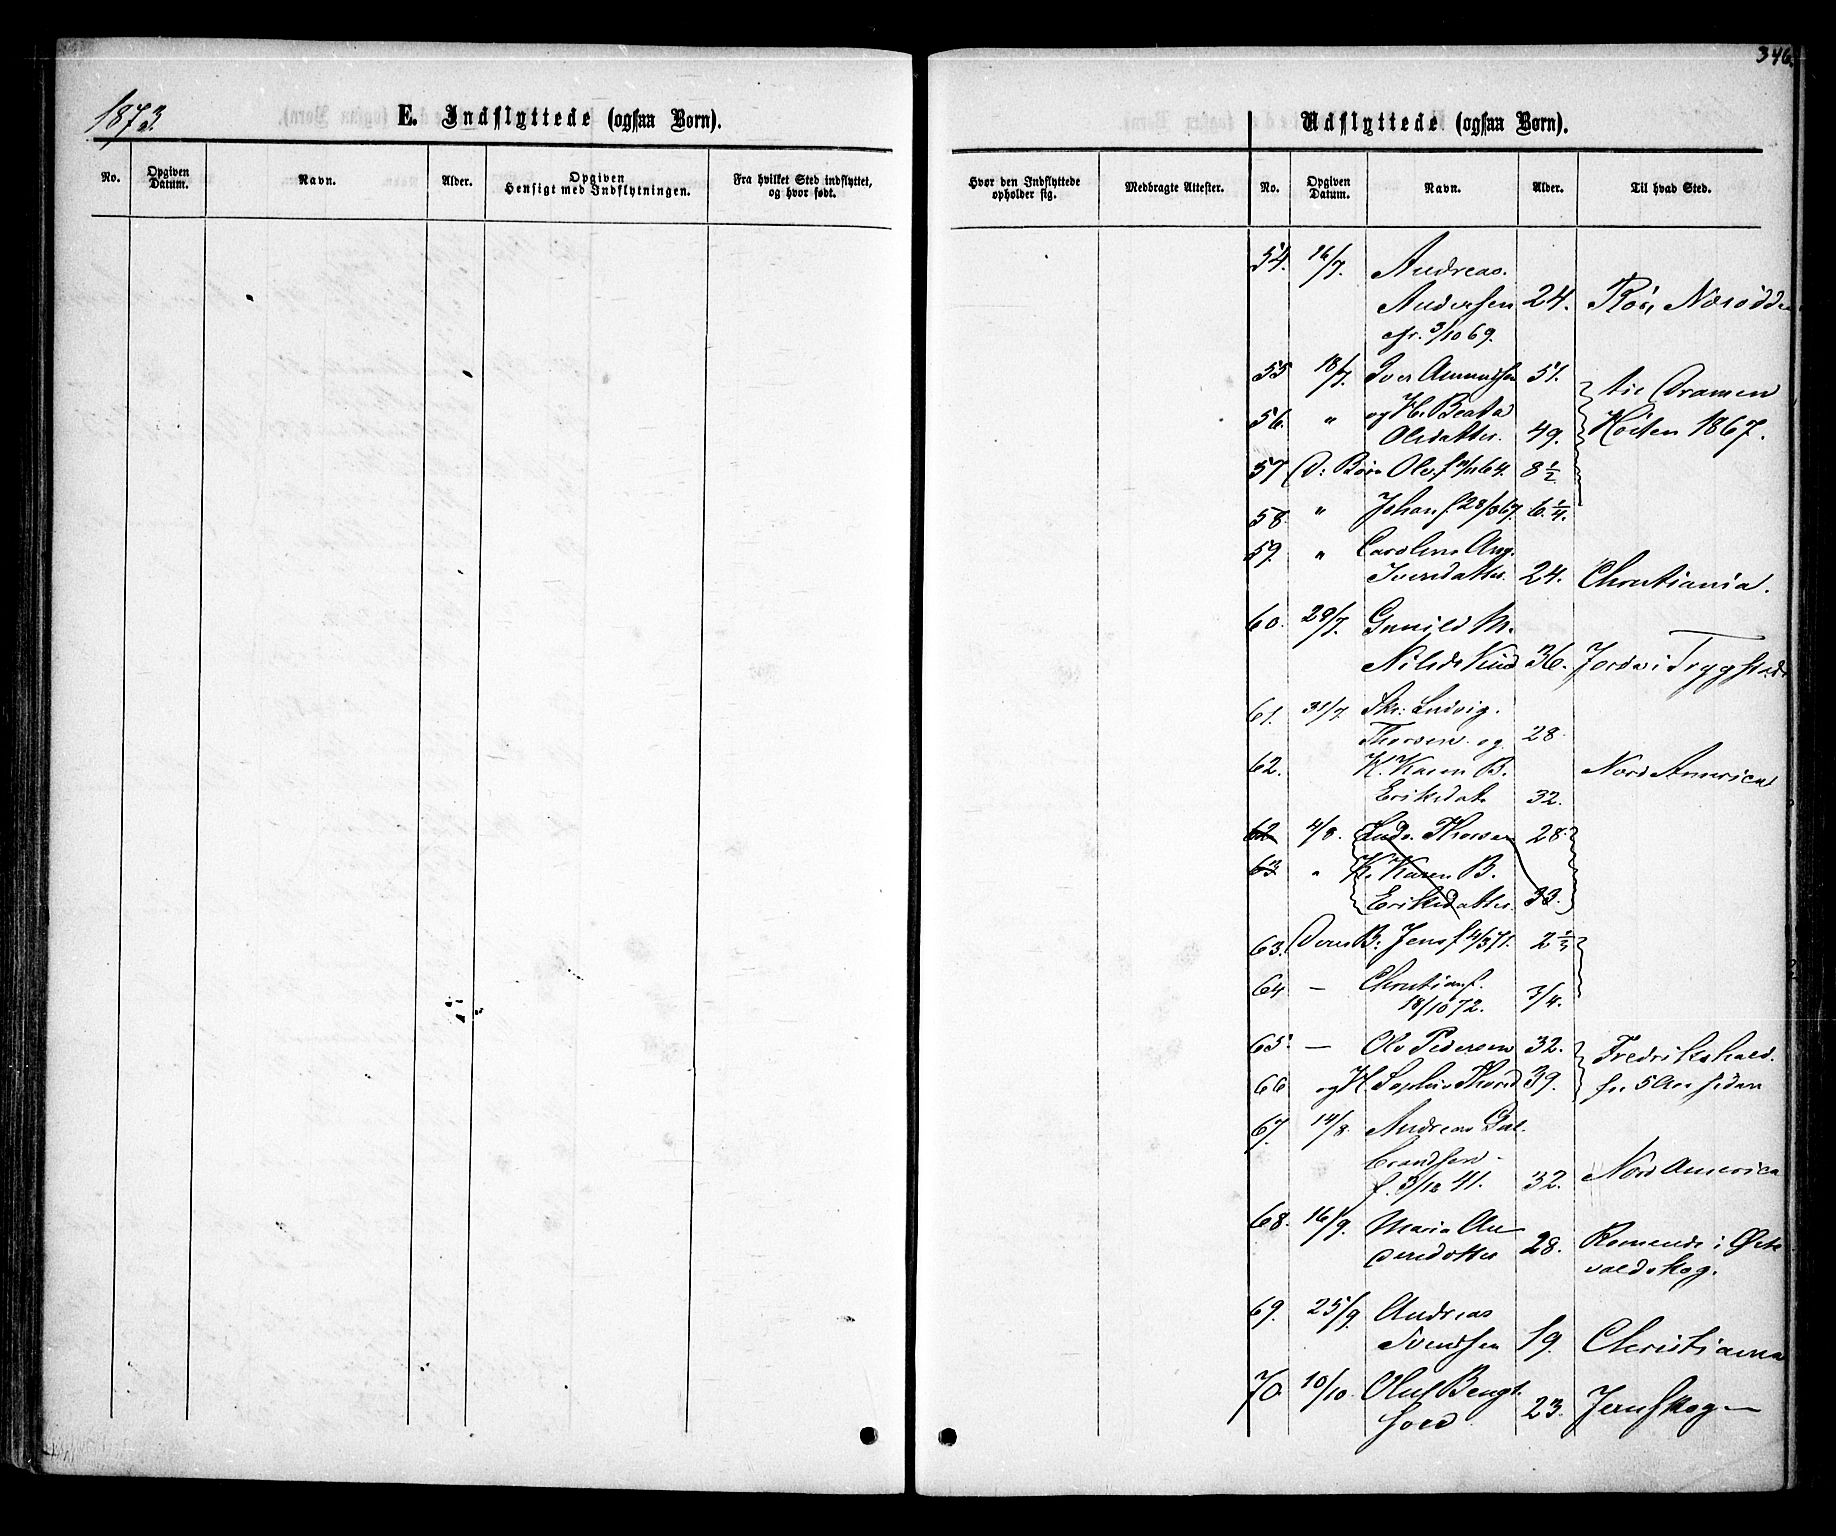 346.
1873
E. Indflyttede (ogsaa Børn).
Udflyttede (ogsaa Børn).
No. Opgiven Datum. Navn. Alder. Opgiven Hensigt med Indflytningen. Fra hvilket Sted indflyttet, og hvor født.
Hvor den Indflyttede opholder sig. Medbragte Attester. No. Opgiven Datum. Navn. Alder. Til hvad Sted.
54. 16/7. Andreas
Andersen 24.
3/10 69.
55 18/7. Iver Amundsen 51. Dramen
56. " og H. Beata
Olsdatter. 49. Høsten 1867.
57 D: Børn Ole f 64. 8 1/2
58 " Johan f 28/ 67. 6 1/4.
59. " Caroline Aug.
Iversdatter 24. Christiania.
60. 29/7. Gunild M.
Nilsd. 36. i Trygstad
61. 31/7. Ludvig
Thorsen og 28
62. K. Karen B. Nord America
Eriksdat. 32.
62 4/8. Ludv. Thorsen 28.
63 " K. Karen B.
Eriksdatter. 33.
63. Deres B: Jens f 4/3 71. 2 1/3
64 — Christian f.
18/10 72. 3/4.
65. — Ole Pedersen 32. Fredrikshald
66 og H. Sophie Thorsd 39. for 5 Aar siden
67. 14/8 Andreas Gul-
brandsen
f. 3/12 41. 32. Nord America
68. 16/9. Maria An-
dersdatter 28. Romende i Øste
valdskog.
69. 25/9. Andreas
Svendsen 19. Christiania
70. 10/10. Oluf Bengt-
23. Jernskog